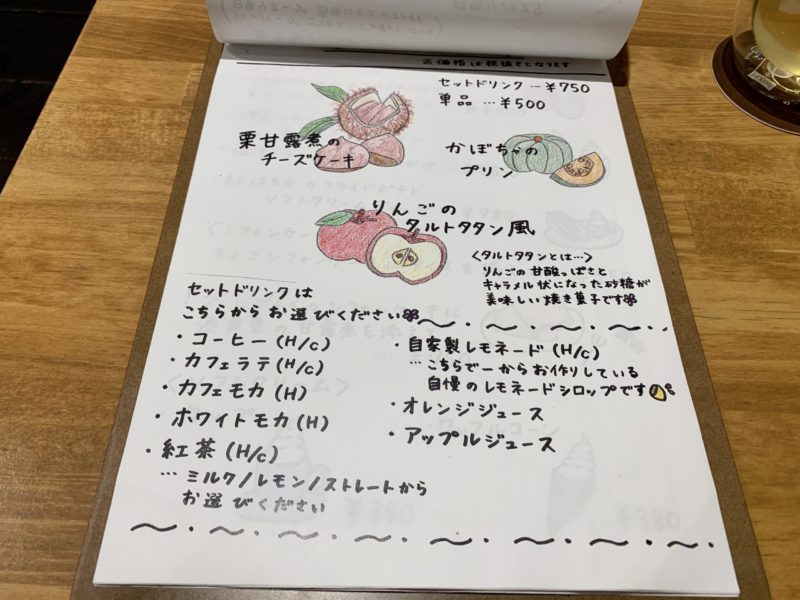 ※価格は税抜きとなります
セットドリンク…¥750
単品…¥500
栗甘露煮の
チーズケーキ
かぼちゃの
プリン
りんごの
タルトタタン風
<タルトタタンとは…>
りんごの甘酸っぱさと
キャラメル状になった砂糖が
美味しい焼き菓子です
セットドリンクは
こちらからお選びください
・コーヒー(H/c)
・カフェラテ(H/c)
・カフェモカ(H)
・ホワイトモカ(H)
・紅茶(H/c)
…ミルク/レモン/ストレートから
お選びください
・自家製レモネード(H/c)
…こちらで一からお作りしている
自慢のレモネードシロップです
・オレンジジュース
・アップルジュース